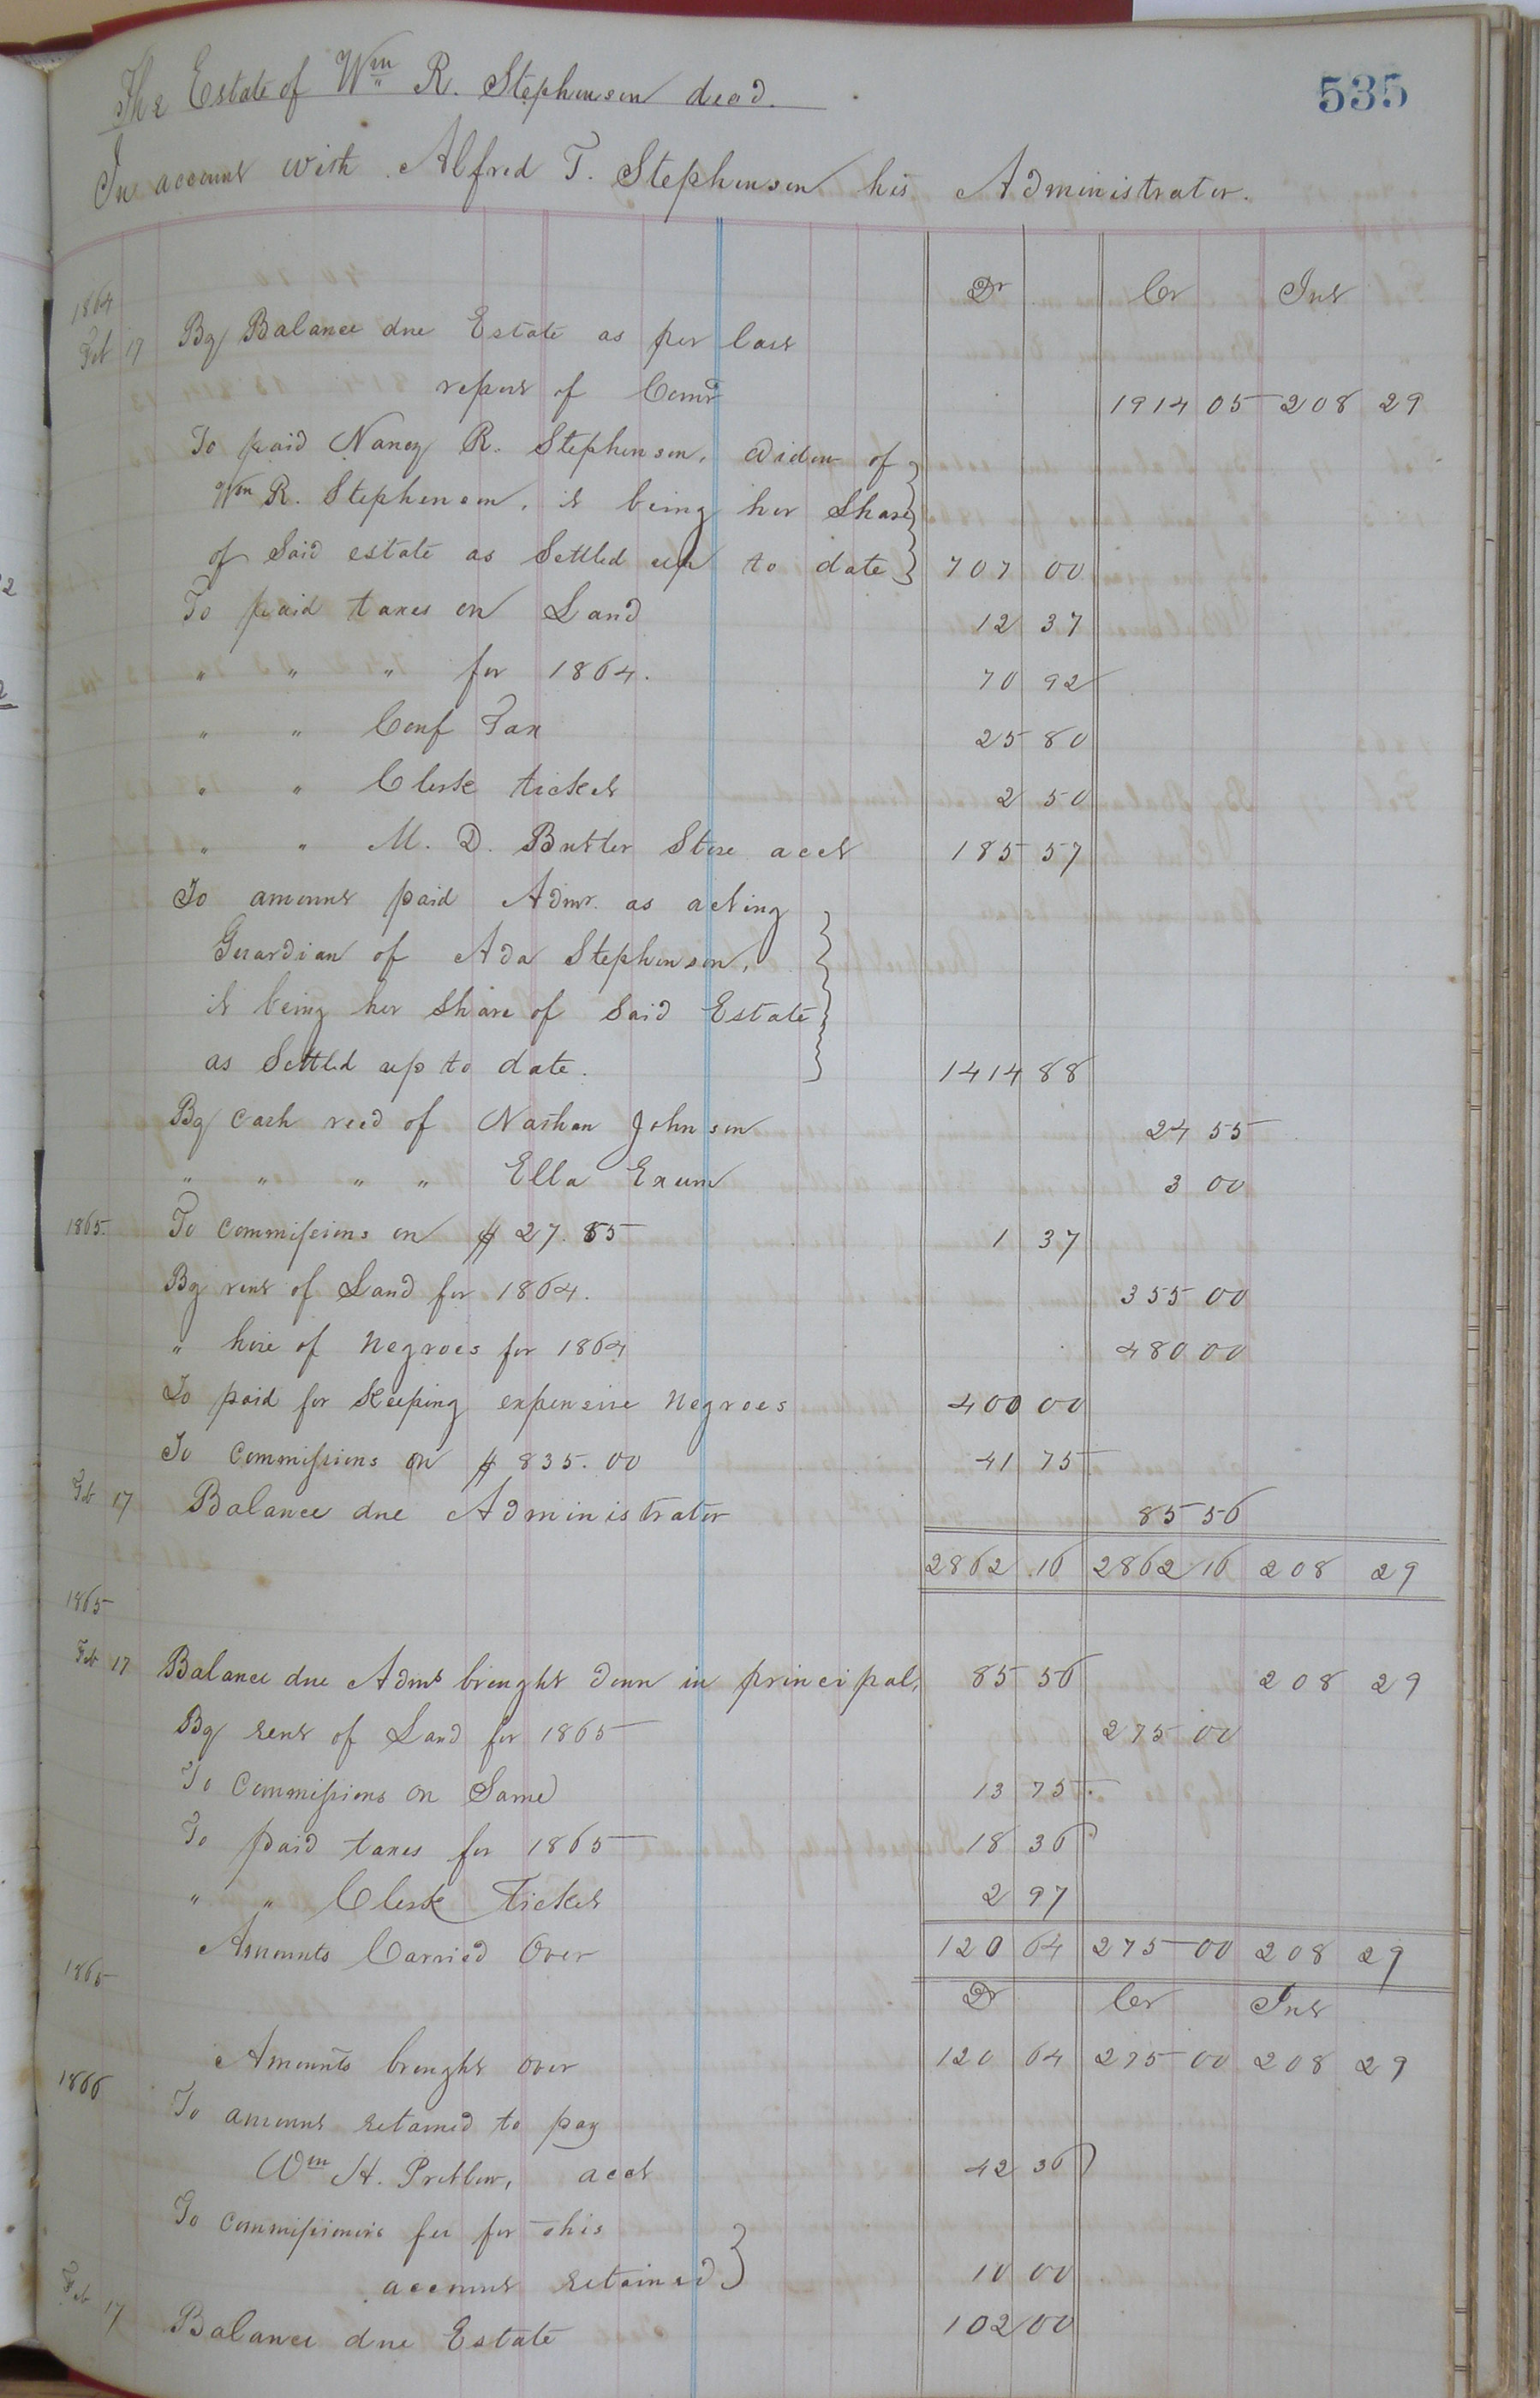 535
The Estate of Wm R. Stephenson decd.
In account with Alfred T. Stephenson his Administrator.
Dr Cr Int
1864
Feb 17 By Balance due Estate as per last
report of Comr 1914 05 208 29
To paid Nancy R. Stephenson, Widow of
Wm R. Stephenson, it being her Share
of Said estate as Settled up to date 707 00
To paid taxes on Land 12 37
" " " for 1864. 70 92
" " Conf Tax 25 80
" " Clerk ticket 2 50
" " M. D. Butler Store acct 185 57
To amount paid Admr. as acting
Guardian of Ada Stephenson,
it being her Share of Said Estate
as Settled up to date. 1414 88
By Cash recd of Nathan Johnson 24 55
" " " " Ella Exum 3 00
1865. To Commissions on $ 27.55 1 37
By rent of Land for 1864. 355 00
" hire of Negroes for 1864 480 00
To paid for Keeping expensive Negroes 400 00
To Commissions on $ 835.00 41 75
Feb 17 Balance due Administrator 85 56
2862 16 2862 16 208 29
1865
Feb 17 Balance due Admr brought down in principal, 85 56 208 29
By rent of Land for 1865 275 00
To Commissions on Same 13 75
To paid taxes for 1865 18 36
" " Clerk Ticket 2 97
Amounts Carried Over 120 64 275 00 208 29
1865
Dr Cr Int
Amounts brought over 120 64 275 00 208 29
1866
To amount retained to pay
Wm H. Pretlow, acct 42 36
To Commissioners fee for this
account retained 10 00
Feb 17 Balance due Estate 102 00